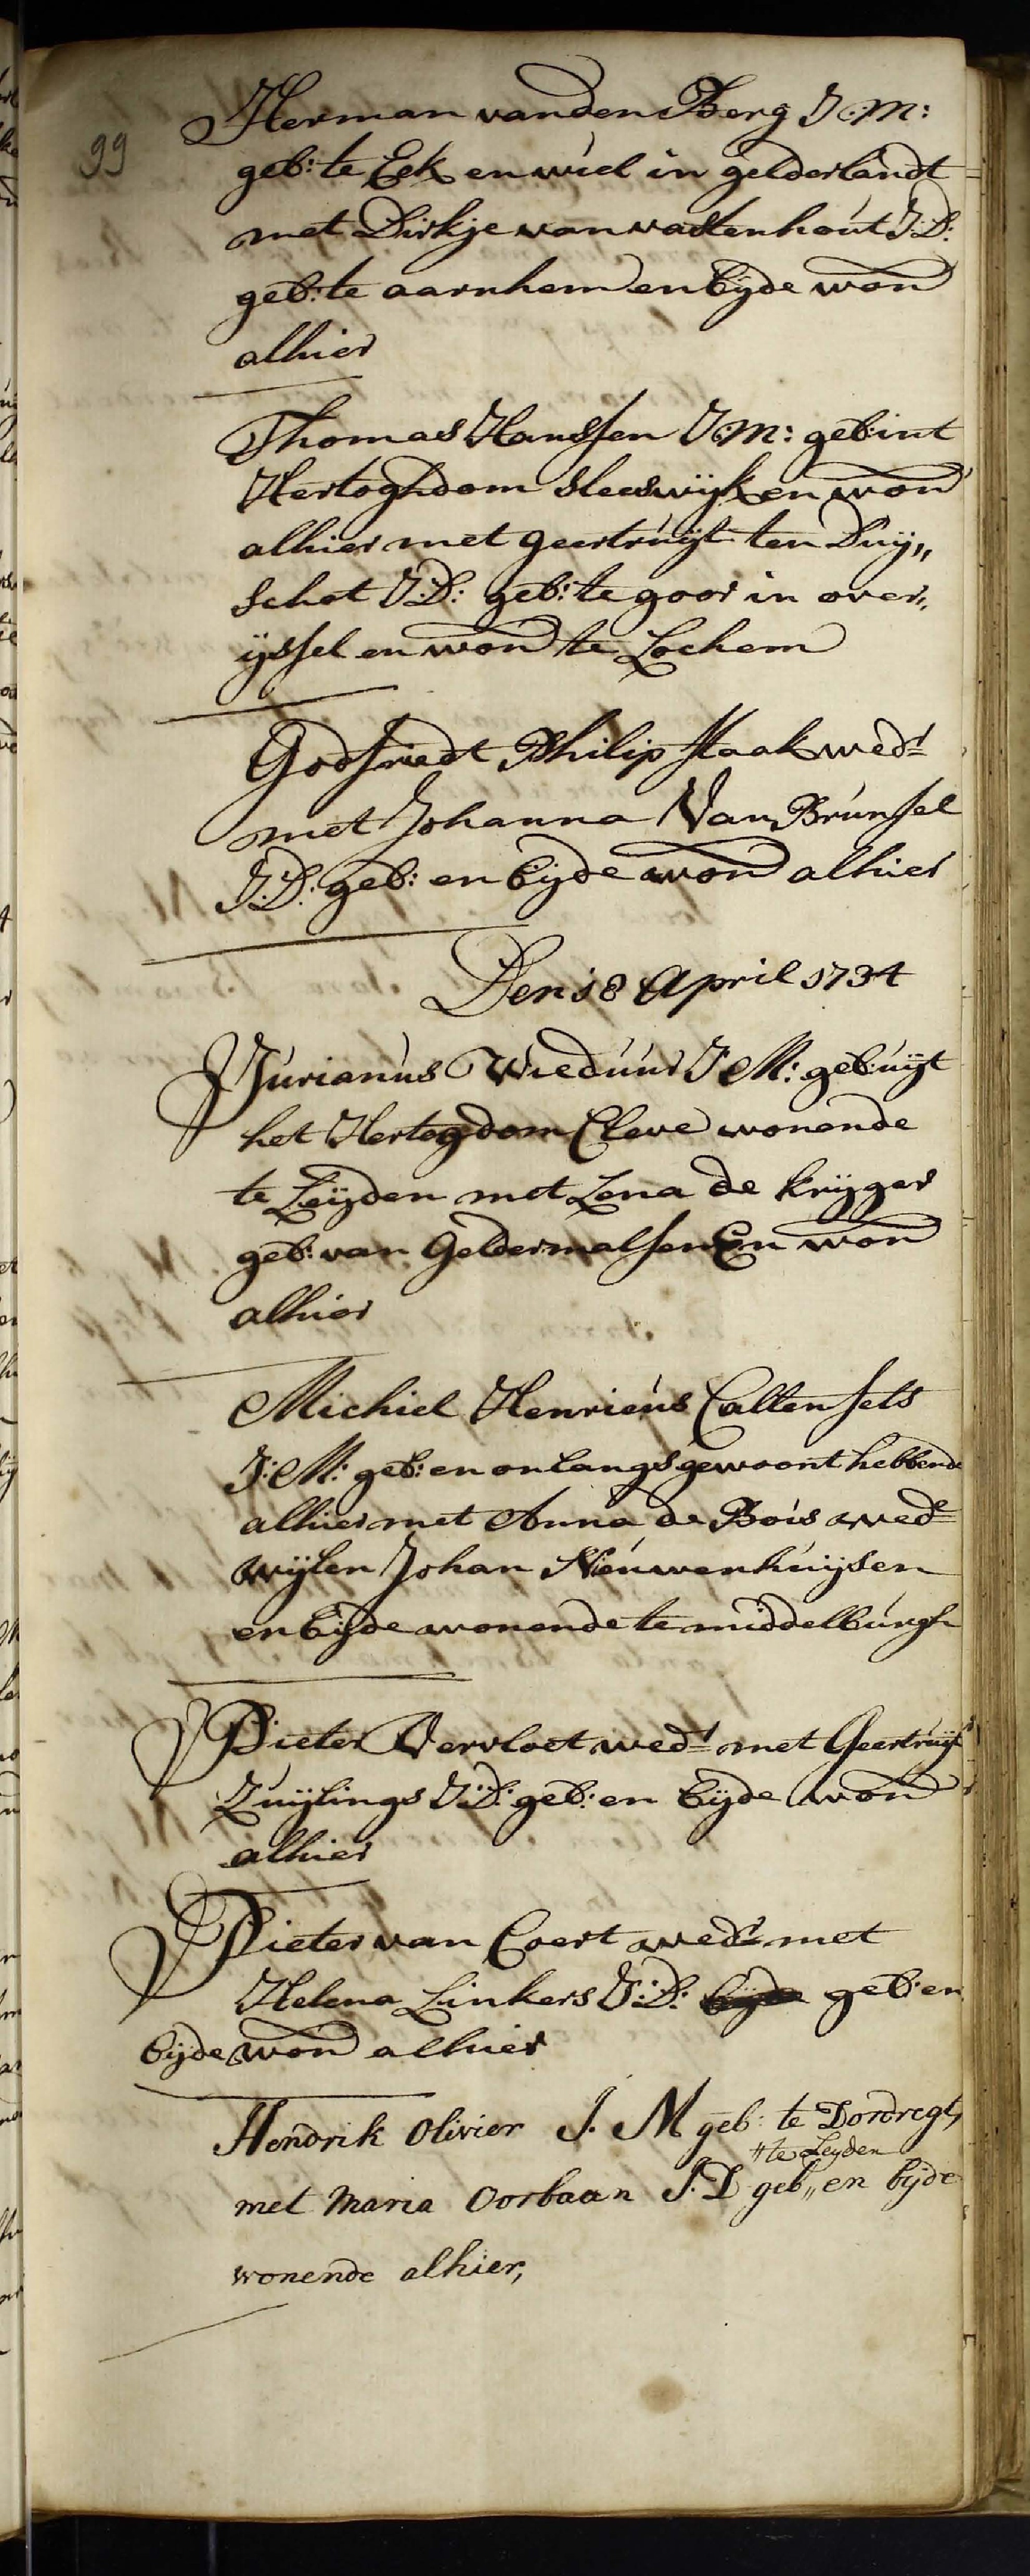 99
Herman vanden Berg J:M:
geb: te Eck en wiel in gelderlandt
met Dirkje van vastenhout J:D:
geb: te aarnhem en bijde won
alhier
Thomas Hanssen J:M: geb: int
Hertoghdom Sleeswijk en won
alhier met geertruijt ten Duij„
schot J:D: geb: te goor in over„
ijssel en won te Lochem
Godfriedt Philip Staak wedr
met Johanna Van Brunsel
J:D: geb: en bijde won alhier
Den 18 April 1734
Jurianus Wieduur J M: geb: uijt
het Hertogdom Cleve wonende
te Leijden met Lena de krijger
geb: van Geldermalsen En won
alhier
Michiel Henricus Caltensels
J:M: geb: en onlangs gewoont hebbende
alhier met Anna de Bois wed
wijlen Johan Nieuwenhuijsen
en bijde wonende te middelburgh
Pieter Vervloet wedr met Geertruijt
Zuijlings J:D: geb: en bijde won
alhier
Pieter van Coert wedr met
Helena Linkers J:D: geb: en
bijde won alhier
Hendrik Olivier J. M geb: te Dordregt,
te Leyden
met Maria Oorbaan J. D geb„ en bijde
wonende alhier,